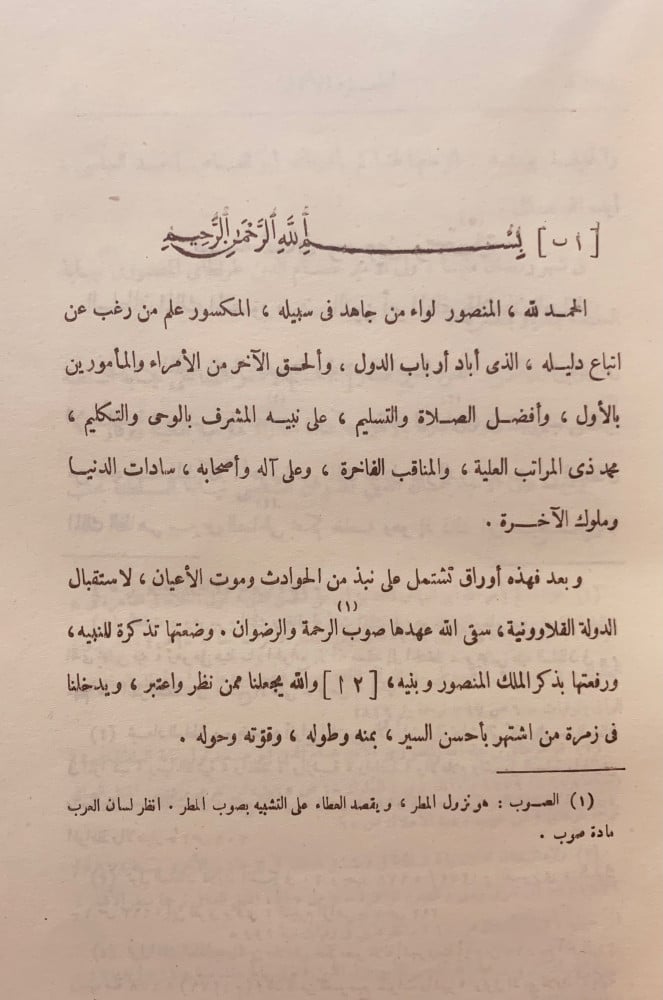 [ ١ ب ] بِسْمِ ٱللَّهِ ٱلرَّحْمَٰنِ ٱلرَّحِيمِ
الحمد لله ، المنصور لواء من جاهد فى سبيله ، المكسور علم من رغب عن
اتباع دليله ، الذى أباد أرباب الدول ، وألحق الآخر من الأمراء والمأمورين
بالأول ، وأفضل الصلاة والتسليم ، على نبيه المشرف بالوحى والتكليم ،
محمد ذى المراتب العلية ، والمناقب الفاخرة ، وعلى آله وأصحابه ، سادات الدنيا
وملوك الآخرة .
وبعد فهذه أوراق تشتمل على نبذ من الحوادث وموت الأعيان ، لاستقبال
الدولة القلاوونية ، سقى الله عهدها صوب (١) الرحمة والرضوان . وضعتها تذكرة للنبيه ،
ورفعتها بذكر الملك المنصور وبنيه ، [ ٢ ا ] والله يجعلنا ممن نظر واعتبر ، ويدخلنا
فى زمرة من اشتهر بأحسن السير ، بمنه وطوله ، وقوّته وحوله .
(١) الصوب : هو نزول المطر ، ويقصد العطاء على التشبيه بصوب المطر . انظر لسان العرب
مادة صوب .